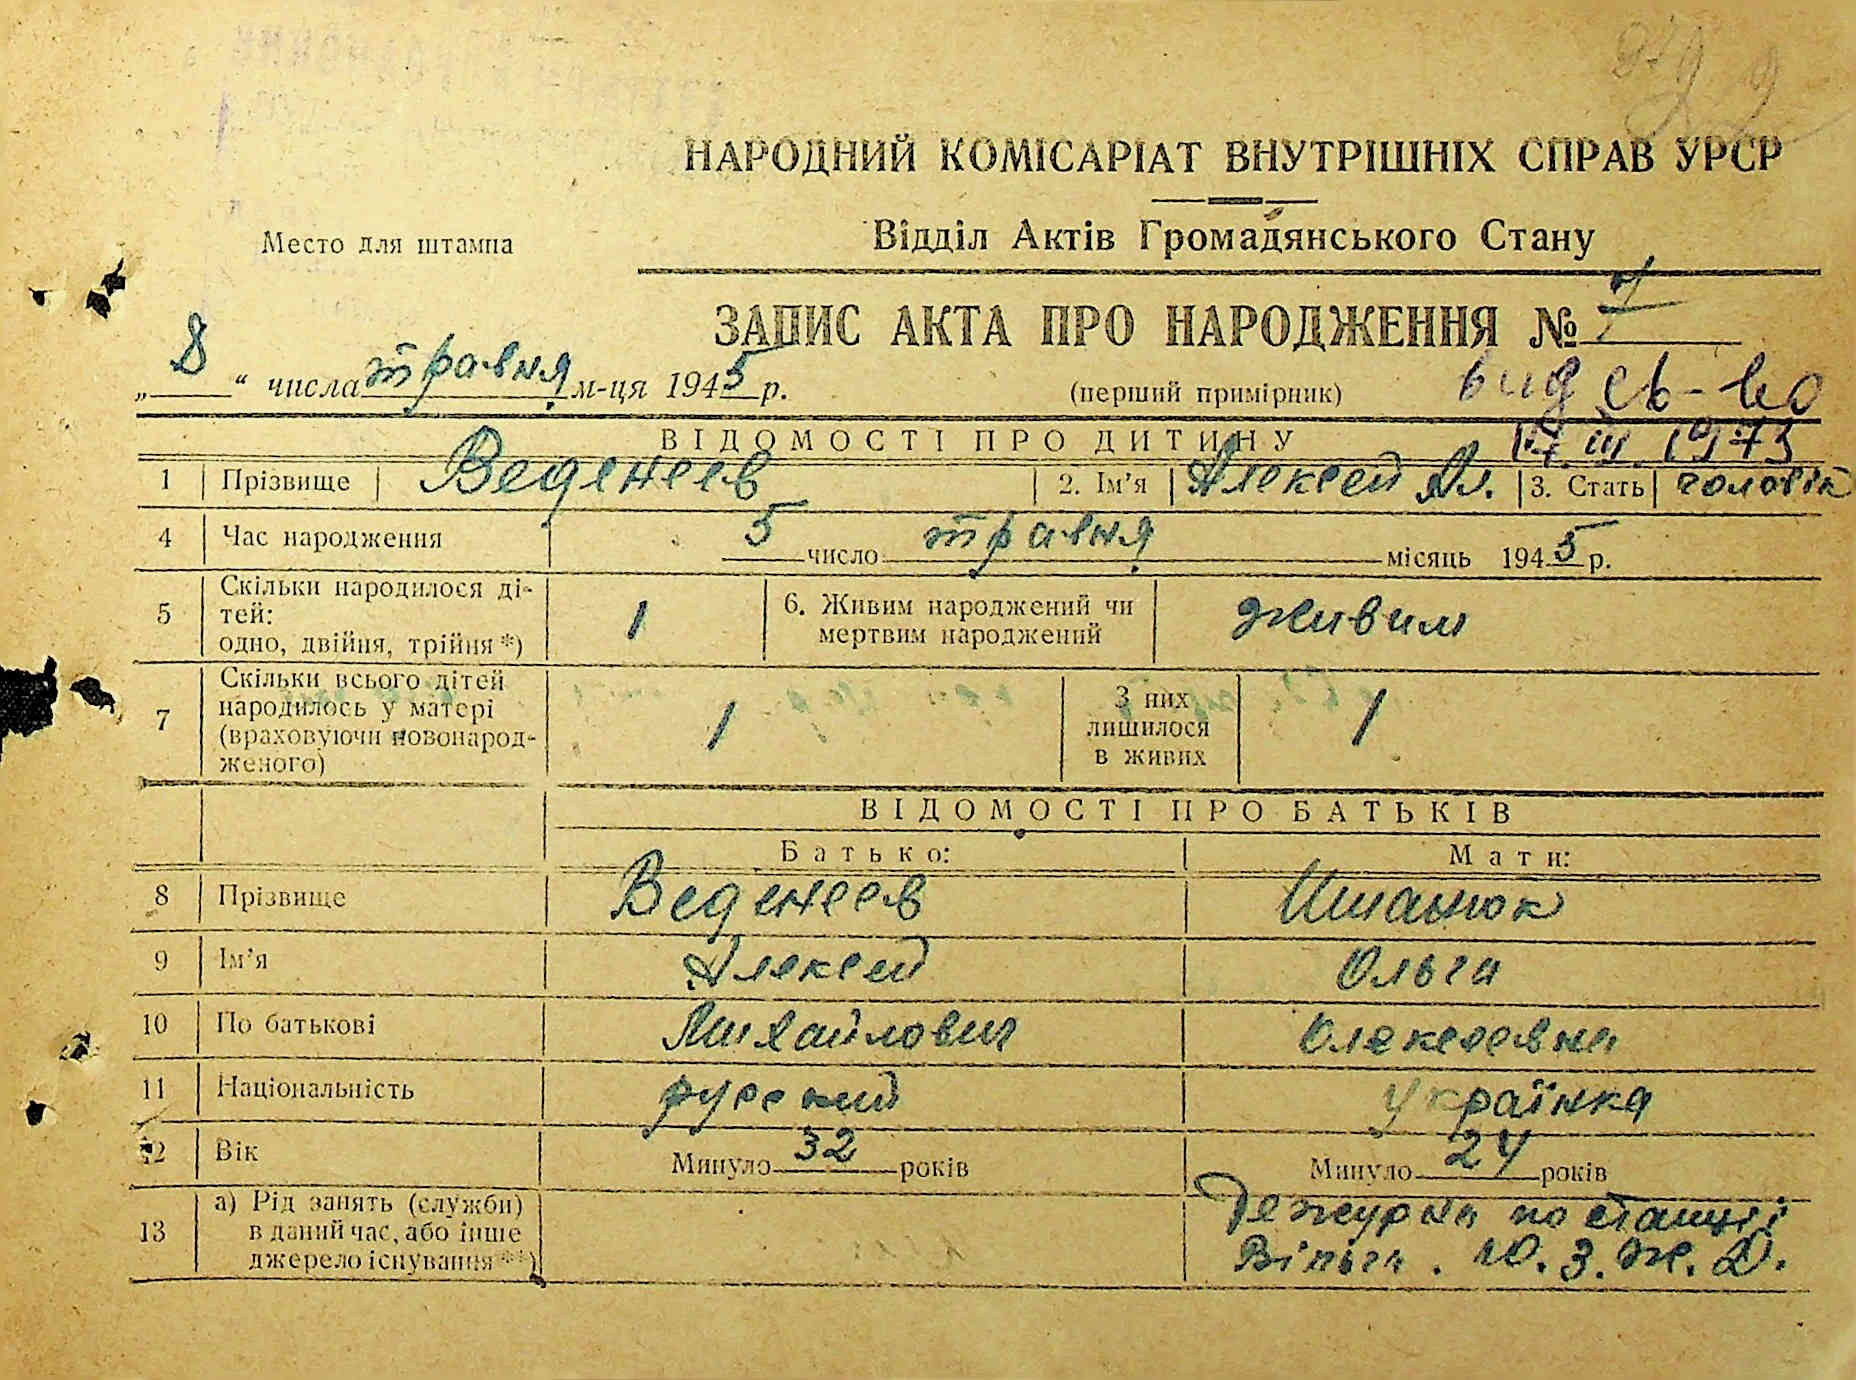 НАРОДНИЙ КОМІСАРІАТ ВНУТРІШНІХ СПРАВ УРСР
Место для штампа
Відділ Актів Громадянського Стану
ЗАПИС АКТА ПРО НАРОДЖЕННЯ № 7
„ 8 “ числа травня м-ця 1945 р.
(перший примірник)
вид св-во
17.III.1973
ВІДОМОСТІ ПРО ДИТИНУ
1 Прізвище Веденеев 2. Ім’я Алексей Ал. 3. Стать чоловік
4 Час народження 5 число травня місяць 1945 р.
5 Скільки народилося ді-
тей:
одно, двійня, трійня *) 1 6. Живим народжений чи
мертвим народжений живим
7 Скільки всього дітей
народилось у матері
(враховуючи новонарод-
женого) 1 З них
лишилося
в живих 1
ВІДОМОСТІ ПРО БАТЬКІВ
Батько: Мати:
8 Прізвище Веденеев
9 Ім’я Алексей Ольга
10 По батькові Михайлович Олексеевна
11 Національність русский Українка
12 Вік Минуло 32 років Минуло 24 років
13 а) Рід занять (служби)
в даний час, або інше
джерело існування **)
Дежурна по станції
Вільча. Ю.З.Ж.Д.